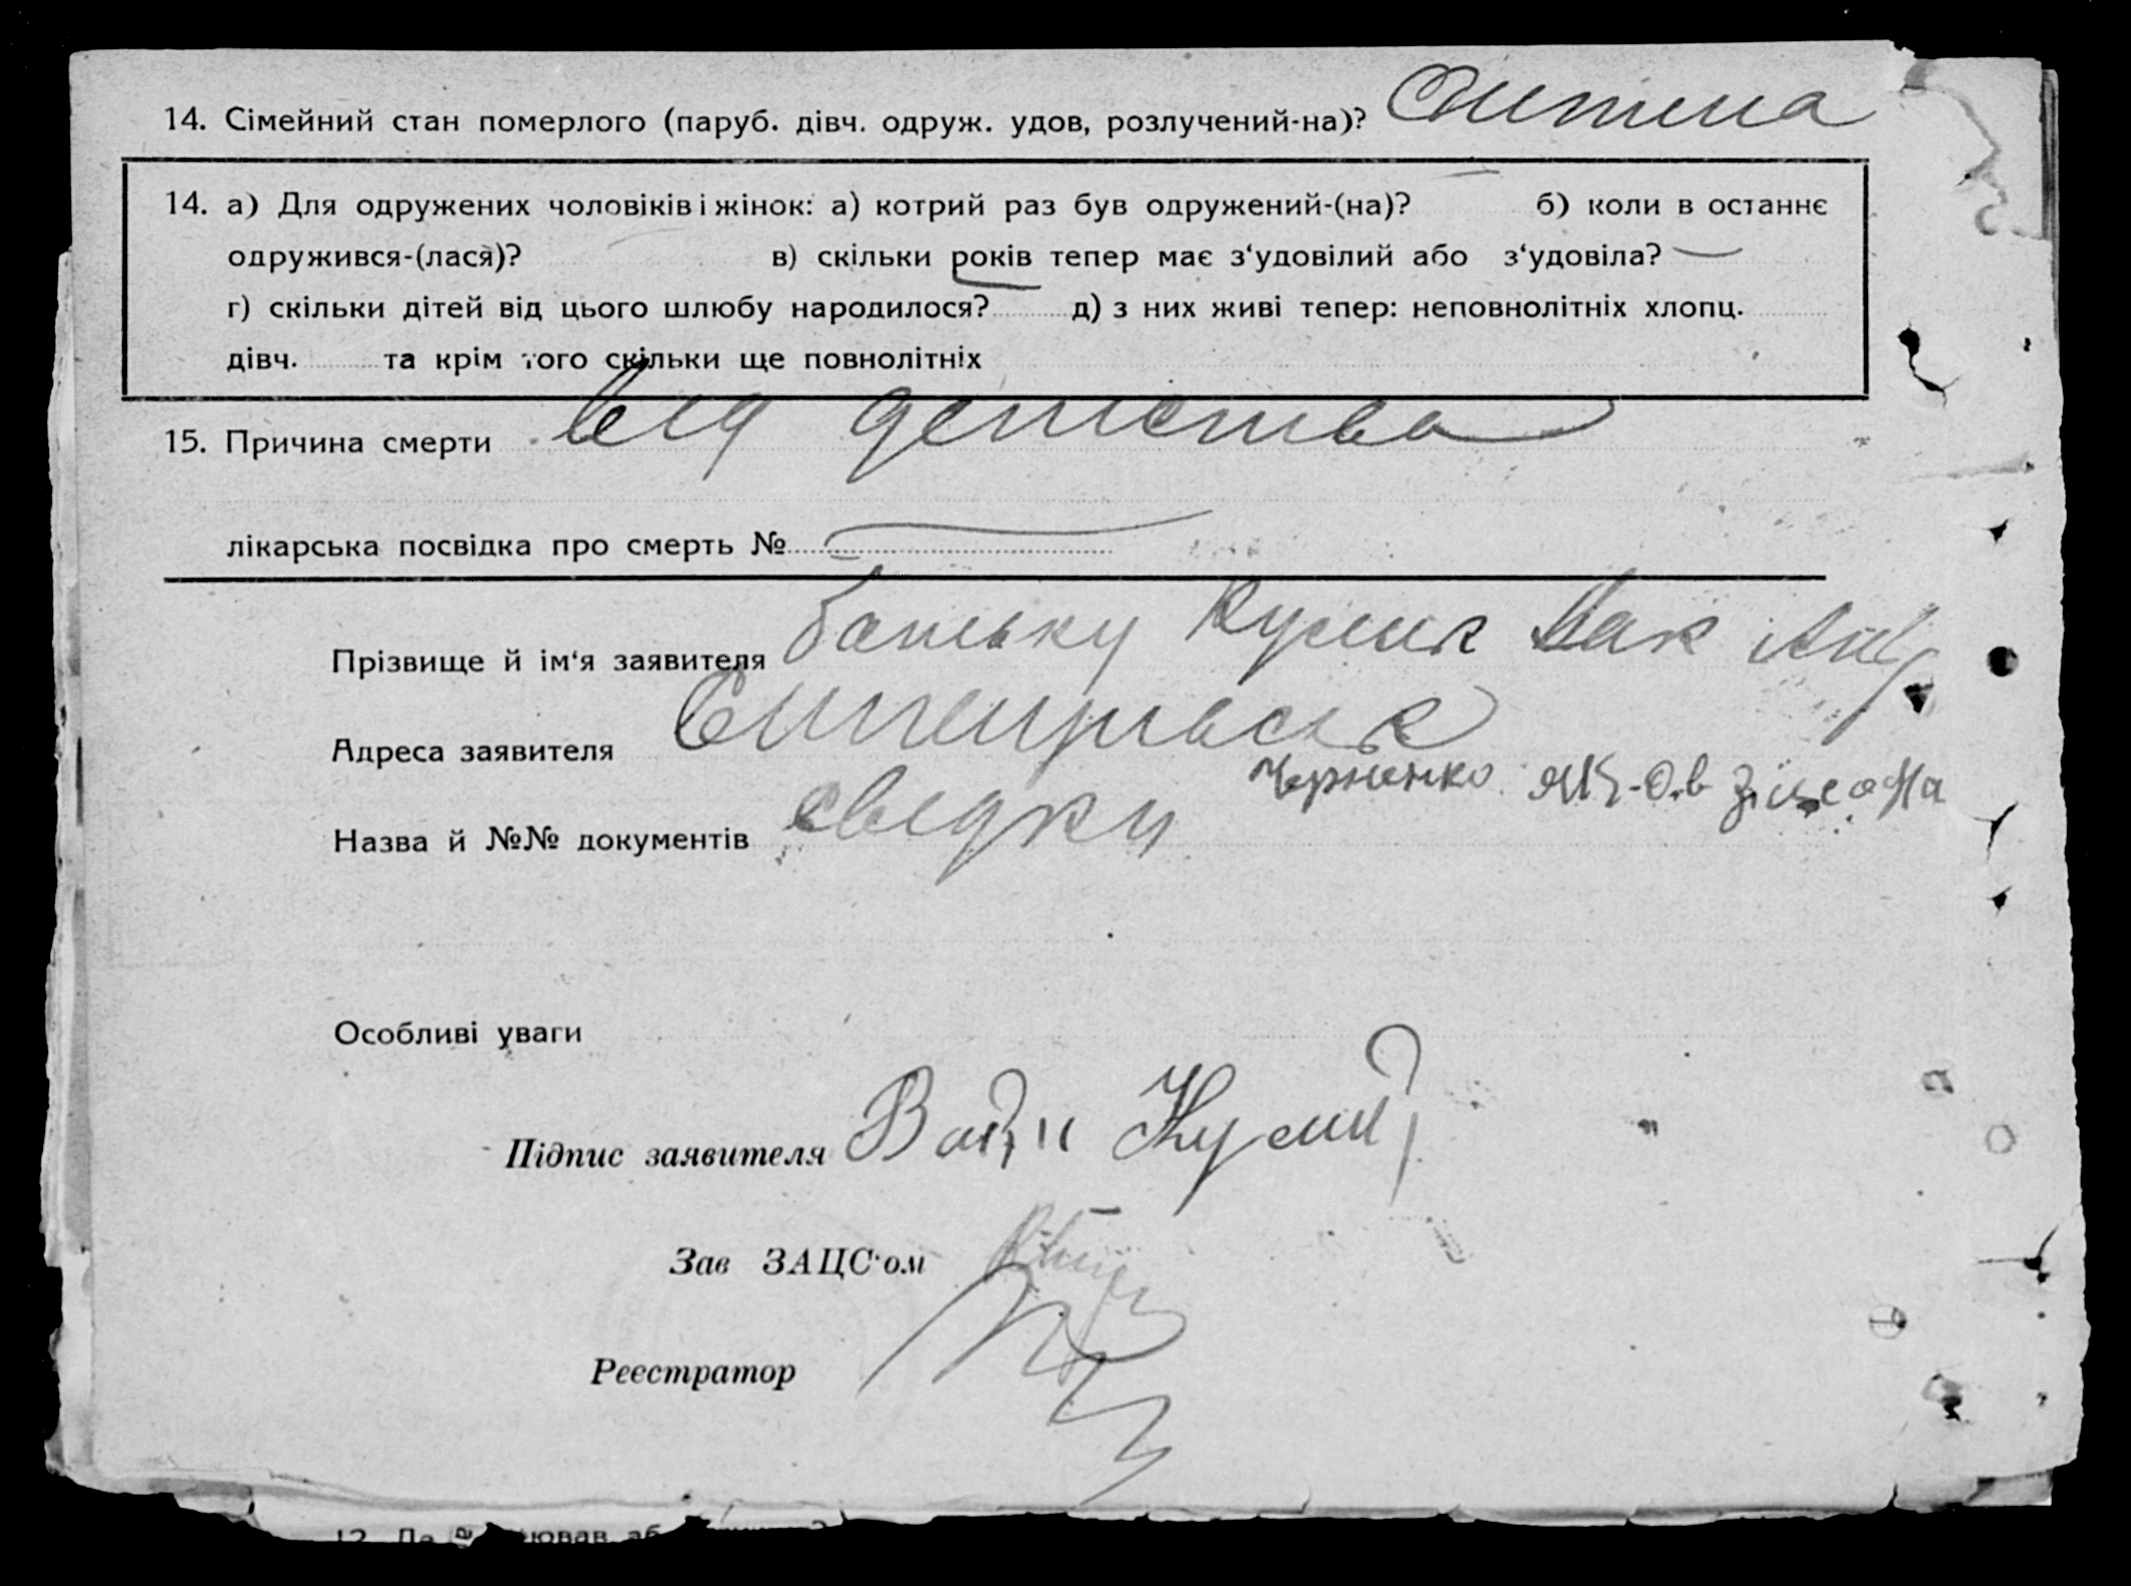 14. Сімейний стан померлого (паруб. дівч. одруж. удов, розлучений-на)? Дитина
14. а) Для одружених чоловіків і жінок: а) котрий раз був одружений-(на)? б) коли в останнє
одружився-(лася)? в) скільки років тепер має з‘удовілий або з‘удовіла?
г) скільки дітей від цього шлюбу народилося? д) з них живі тепер: неповнолітніх хлопц.
дівч. та крім того скільки ще повнолітніх
15. Причина смерти від детства
лікарська посвідка про смерть №
Прізвище й ім‘я заявителя батьку Кулик Мак
Адреса заявителя
Черненко
Назва й №№ документів свідки
Особливі уваги
Підпис заявителя Кулик
Зав ЗАЦС‘ом
Реєстратор